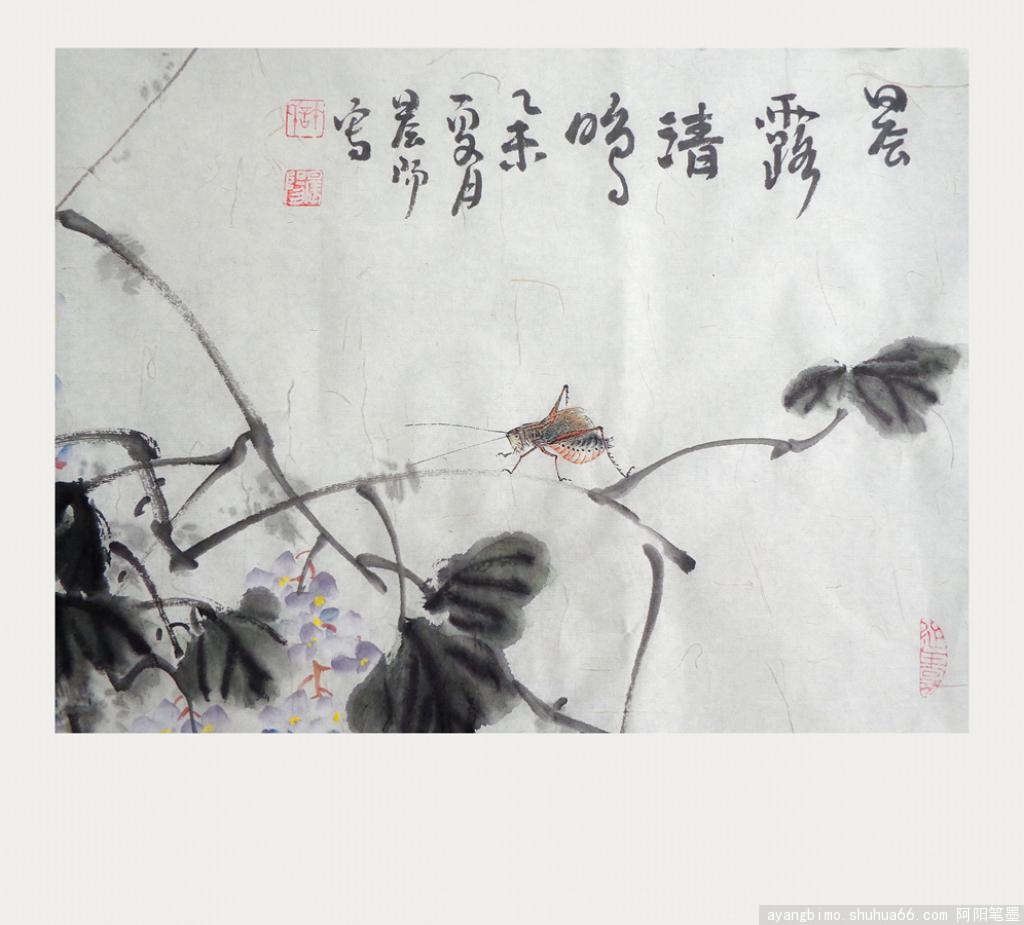 晨
露
清
鸣
乙未
夏月
晨阳
写
ayangbimo.shuhua66.com 阿阳笔墨